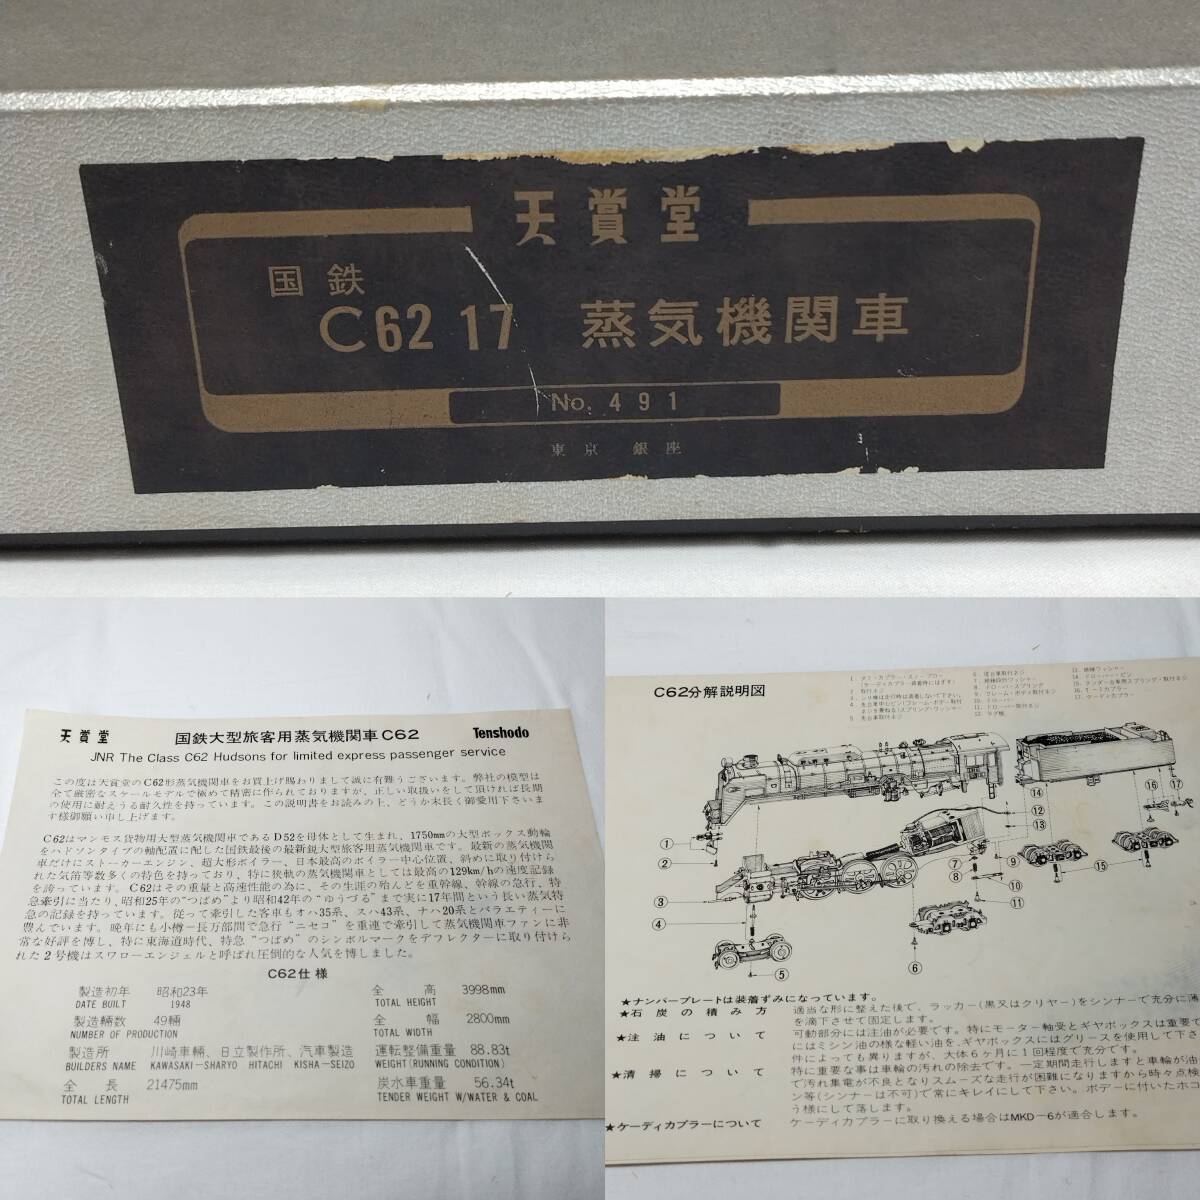 天賞堂
国鉄
C62 17 蒸気機関車
No. 491
東京 銀座
天賞堂 国鉄大型旅客用蒸気機関車C62 Tenshodo
JNR The Class C62 Hudsons for limited express passenger service
この度は天賞堂のC62形蒸気機関車をお買上げ賜わりまして誠に有難うございます。弊社の模型は
全て厳密なスケールモデルで極めて精密に作られておりますが、正しい取扱いをして頂ければ長期
の使用に耐えうる耐久性を持っています。この説明書をお読みの上、どうか末長く御愛用下さいま
す様御願い申し上げます。
C62はマンモス貨物用大型蒸気機関車であるD52を母体として生まれ、1750mmの大型ボックス動輪
をハドソンタイプの軸配置に配した国鉄最後の最新鋭大型旅客用蒸気機関車です。最新の蒸気機関
車だけにストーカーエンジン、超大形ボイラー、日本最高のボイラー中心位置、斜めに取り付けら
れた気笛等数多くの特色を持っており、特に狭軌の蒸気機関車としては最高の129km/hの速度記録
を誇っています。C62はその重量と高速性能の為に、その生涯の殆んどを重幹線、幹線の急行、特
急牽引に当たり、昭和25年の"つばめ"より昭和42年の"ゆうづる"まで実に17年間という長い蒸気特
急の記録を持っています。従って牽引した客車もオハ35系、スハ43系、ナハ20系とバラエティーに
豊んでいます。晩年にも小樽―長万部間で急行"ニセコ"を重連で牽引して蒸気機関車ファンに非
常な好評を博し、特に東海道時代、特急"つばめ"のシンボルマークをデフレクターに取り付けら
れた2号機はスワローエンジェルと呼ばれ圧倒的な人気を博しました。
C62仕様
製造初年 昭和23年 全高 3998mm
DATE BUILT 1948 TOTAL HEIGHT
製造輛数 49輛 全幅 2800mm
NUMBER OF PRODUCTION TOTAL WIDTH
製造所 川崎車輛、日立製作所、汽車製造 運転整備重量 88.83t
BUILDERS NAME KAWASAKI―SHARYO HITACHI KISHA―SEIZO WEIGHT(RUNNING CONDITION)
全長 21475mm 炭水車重量 56.34t
TOTAL LENGTH TENDER WEIGHT W/WATER & COAL
C62分解説明図
2 取付ネジ
5 先台車取付ネジ
8 ドローバー・スプリング
10 ドローバー
11 ドローバー取付ネジ
14 ドローバー・ピン
17 ケーディカプラー
1
2
3
4
5
6
7
8
9
10
11
12
13
14
15
16
17
★ナンバープレートは装着ずみになっています。
★石炭の積み方 適当な形に整えた後で、ラッカー(黒又はクリヤー)をシンナーで充分に薄
を滴下させて固定します。
★注油について 可動部分には注油が必要です。特にモーター軸受とギヤボックスは重要で
にはミシン油の様な軽い油を、ギヤボックスにはグリースを使用して下さ
件によっても異りますが、大体6ヶ月に1回程度で充分です。
★清掃について 特に重要な事は車輪の汚れの除去です。一定期間走行しますと車輪が油
で汚れ集電が不良となりスムーズな走行が困難になりますから時々点検
ン等(シンナーは不可)で常にキレイにして下さい。ボデーに付いたホコ
う様にして落します。
★ケーディカプラーについて ケーディカプラーに取り換える場合はMKD―6が適合します。